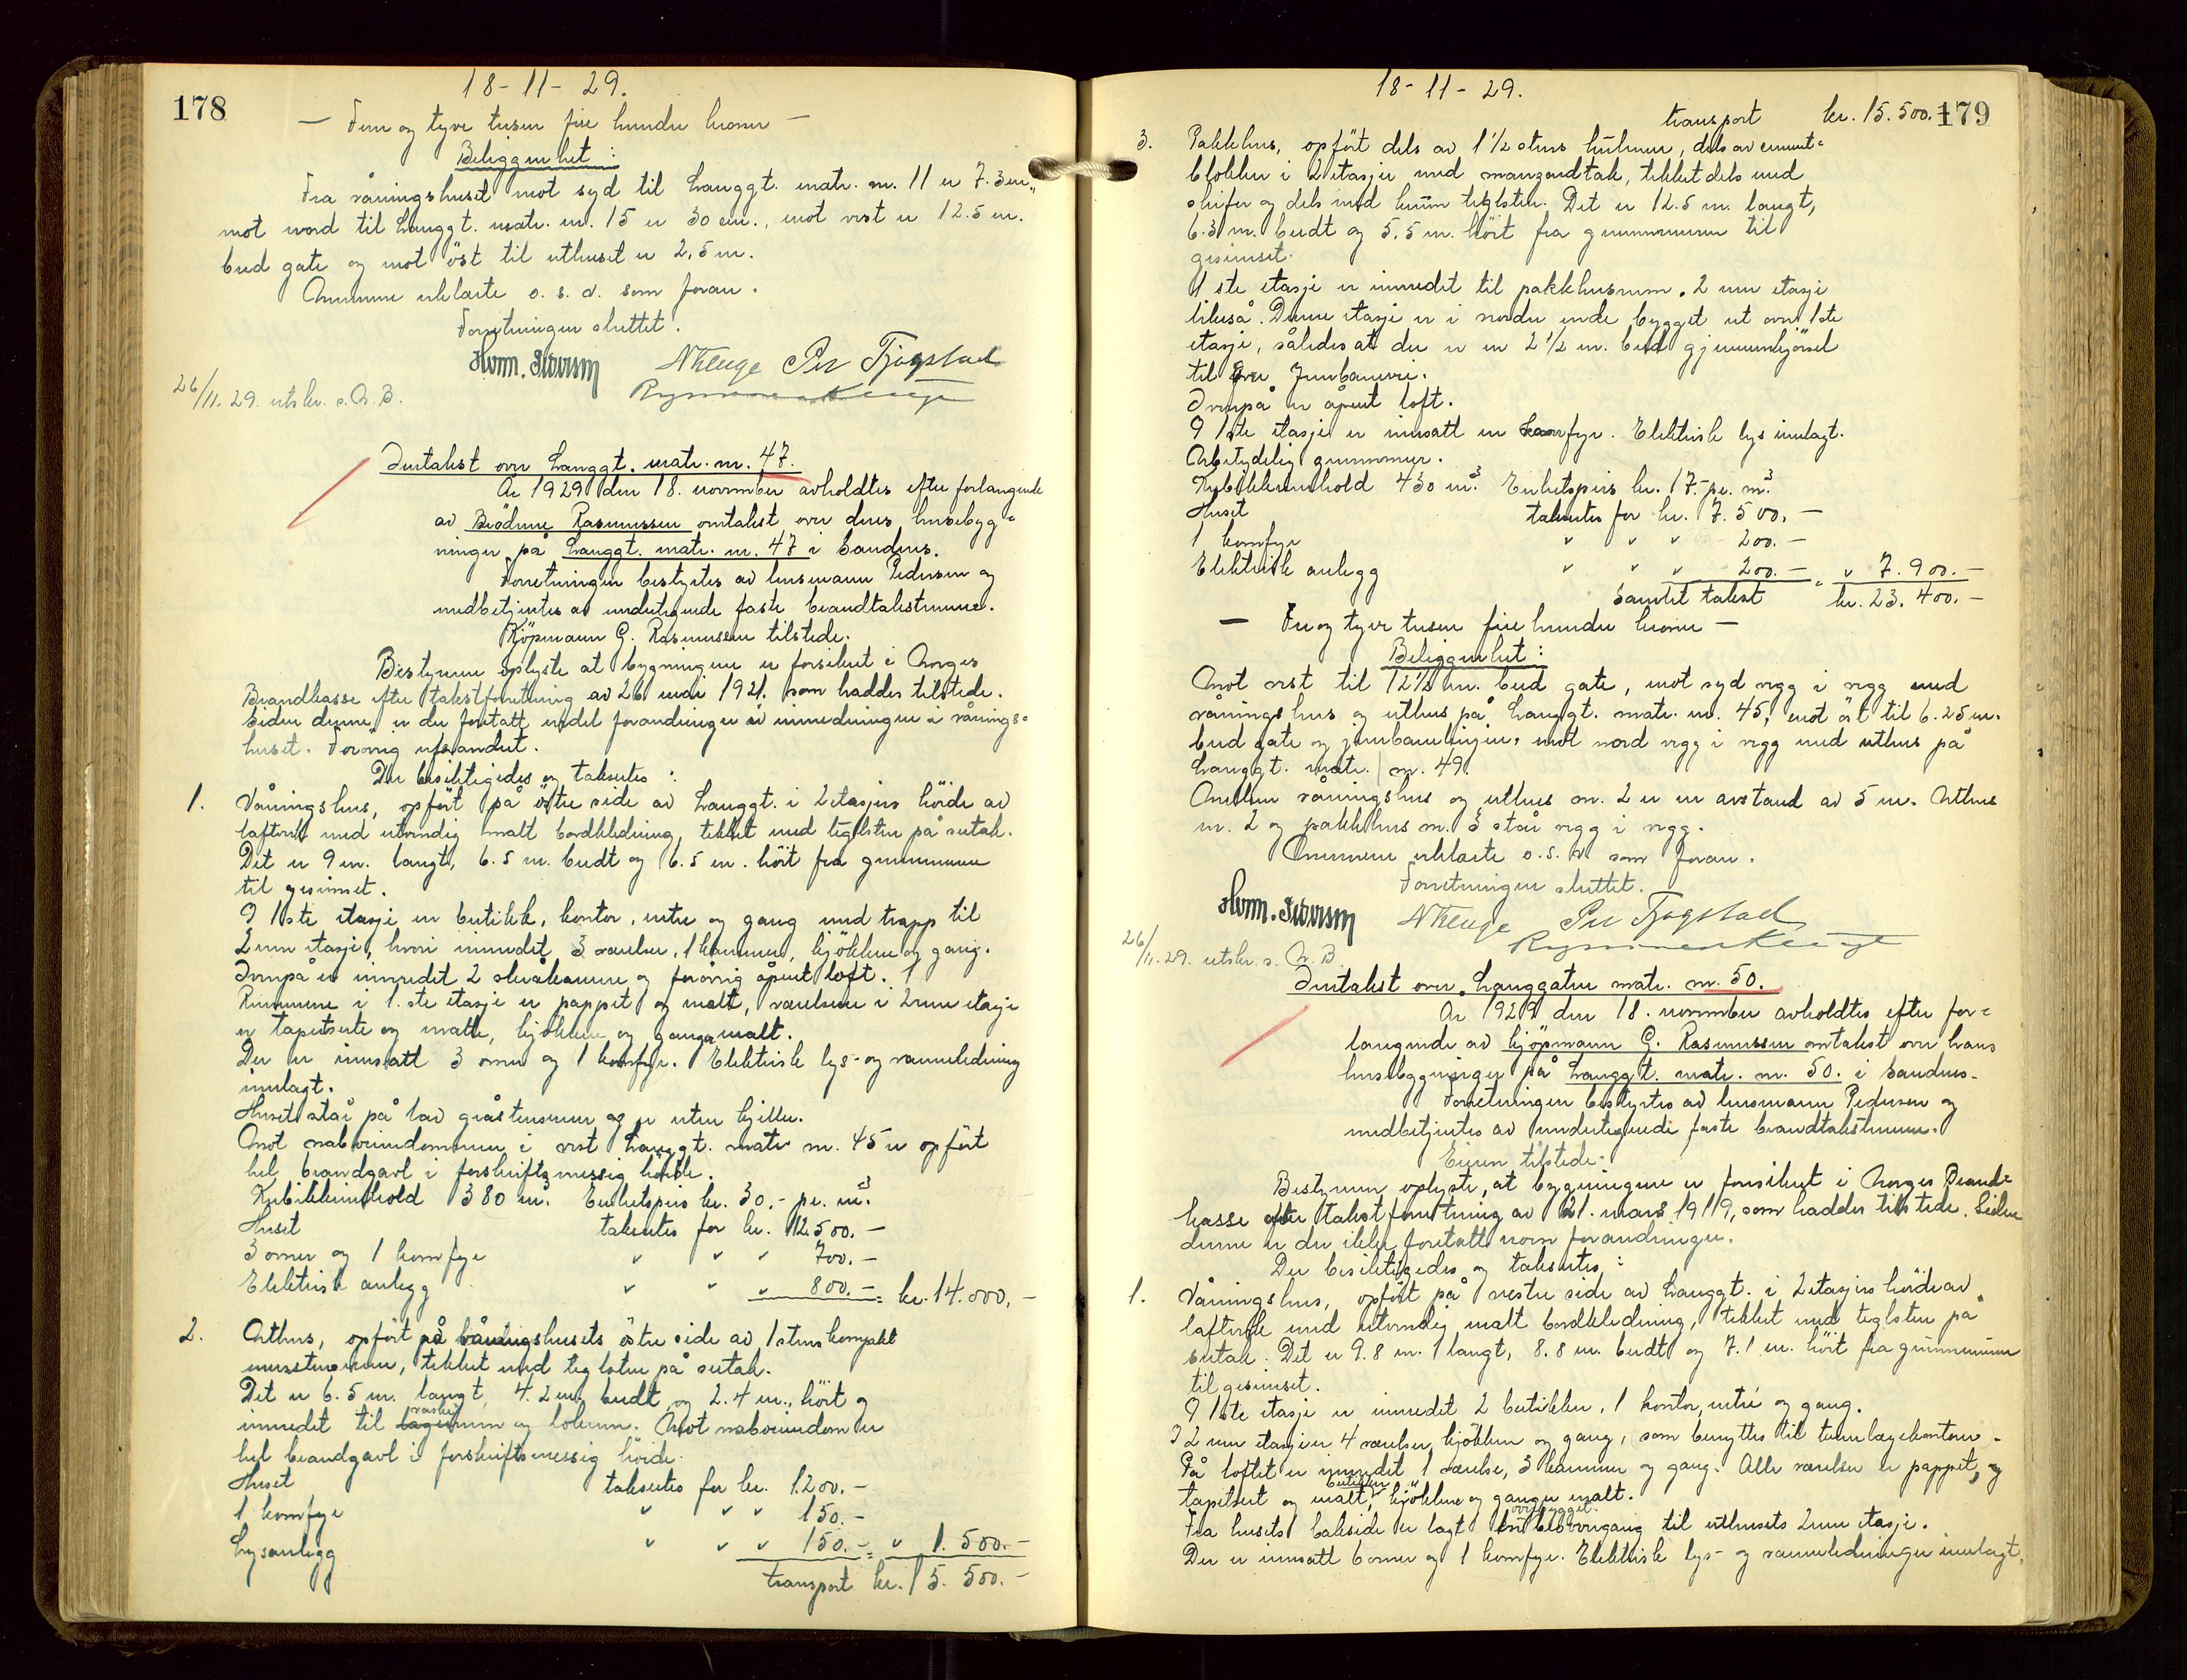 178
18-11-29.
— Fem og tyve tusen fire hundre kroner —
Beliggenhet:
Fra våningshuset mot syd til Langgt. matr. nr. 11 er 7.3 m.,
mot nord til Langgt. matr. nr. 15 er 30 cm., mot vest er 12.5 m.
bred gate og mot öst til uthuset er 2,5 m.
Mennene erklærte o. s. v. som foran.
Forretningen sluttet.
Per Tjogstad
26/11. 29. utskr. s. N. B.
Omtakst over Langgt. matr. nr. 47.
År 1929 den 18. november avholdtes efter forlangende
av Brödrene Rasmussen omtakst over deres husebyg=
ninger på Langgt. matr. nr. 47 i Sandnes.
Forretningen bestyrtes av lensmann Pedersen og
medbetjentes av undertegnede faste brandtakstmenn.
Kjöpmann G. Rasmussen tilstede.
Bestyreren oplyste at bygningene er forsikret i Norges
Brandkasse efter takstforretning av 26 mai 1921. som haddes tilstede.
Siden denne er der foretatt endel forandringer av innredningen i vånings=
huset. Forövrig uforandret.
Der besiktigedes og takseertes:
1. Våningshus, opfört på östre side av Langgt. i 2 etasjers höide av
lafteverk med utvendig malt bordkledning, tekket med teglsten på sutak.
Det er 9 m. langt, 6.5 m. bredt og 6.5 m. höit fra grunnmuren
til gesimset.
I 1ste etasje er butikk, kontor, entre og gang med trapp til
2nen etasje, hvori innredet 3 værelser, 1 kammer, kjökken og gang.
Ovenpå er innredet 2 slevakamre og forövrig åpent loft.
Rummene i 1.ste etasje er pappet og malt, værelsene i 2nen etasje
er tapetserte og malte, kjökken og ganger malt.
Der er innsatt 3 ovner og 1 komfyr. Elektrisk lys- og varmeledning
innlagt.
Huset står på lav gråstensmur og er uten kjeller.
Mot naboeiendommen i vest Langgt. matr. nr. 45 er opfört
hel brandgavl i forskriftsmessig höide.
Kubikkinnhold 380 m³. Enhetspris kr. 30.- pr. m³.
Huset takseertes for kr. 12.500.-
3 ovner og 1 komfyr " " " 700.-
Elektrisk anlegg " " " 800.- = kr. 14.000,-
2. Uthus, opfört på våningshusets östre side av 1 stens kompakt
murstensmur, tekket med teglsten på sutak.
Det er 6.5 m. langt, 4.2 m. bredt og 2.4 m. höit og
innredet til vaske-rum og lokrum. Mot naboeiendom er
hel brandgavl i forskriftsmessig höide.
Huset takseertes for kr. 1.200.-
1 komfyr " " " 150.-
Lysanlegg " " " 150.- = " 1.500.-
transport kr. 15.500.-
179
18-11-29.
transport kr. 15.500.-
3. Pakkhus, opfört dels av 1½ stens hulmur, dels av cement=
blokker i 2 etasjer med mansardtak, tekket dels med
skifer og dels med krum teglsten. Det er 12.5 m. langt,
6.3 m. bredt og 5.5 m. höit fra grunnmuren til
gesimset.
1ste etasje er innredet til pakkhusrum. 2nen etasje
likeså. Denne etasje er i nordre ende bygget ut over 1ste
etasje, således at der er en 2½ m. bred gjennemkjörsel
til Jernbanevei.
Ovenpå er åpent loft.
I 1ste etasje er innsatt en komfyr. Elektrisk lys innlagt.
Ubetydelig grunnmur.
Kubikkinnhold 430 m³. Enhetspris kr. 17.- pr. m³.
Huset takseertes for kr. 7.500.-
1 komfyr " " " 200.-
Elektrisk anlegg " " " 200.- = " 7.900.-
Samlet takst kr. 23.400.-
— Tre og tyve tusen fire hundre kroner —
Beliggenhet:
Mot vest til 12½ m. bred gate, mot syd vegg i vegg med
våningshus og uthus på Langgt. matr. nr. 45, mot öst til 6.25 m.
bred gate og jernbanelinjen, mot nord vegg i vegg med uthus på
Langgt. matr. nr. 49.
Mellem våningshus og uthus nr. 2 er en avstand av 5 m. Uthus
nr. 2 og pakkhus nr. 3 står vegg i vegg.
Mennene erklærte o. s. v. som foran.
Forretningen sluttet.
Per Tjogstad
26/11. 29. utskr. s. N. B.
Omtakst over Langgaten matr. nr. 50.
År 1929 den 18. november avholdtes efter for=
langende av kjöpmann G. Rasmussen omtakst over hans
husebygninger på Langgt. matr. nr. 50. i Sandnes.
Forretningen bestyrtes av lensmann Pedersen og
medbetjentes av undertegnede faste brandtakstmenn.
Eieren tilstede.
Bestyreren oplyste, at bygningene er forsikret i Norges Brand=
kasse efter takstforretning av 21. mars 1919, som haddes tilstede. Siden
denne er der ikke foretatt noen forandringer.
Der besiktigedes og takseertes:
1. Våningshus, opfört på vestre side av Langgt. i 2 etasjers höide av
lafteverk med utvendig malt bordkledning, tekket med teglsten på
sutak. Det er 9.8 m. langt, 8.8 m. bredt og 7.1 m. höit fra grunnmuren
til gesimset.
I 1ste etasje er innredet 2 butikker, 1 kontor, entré og gang.
I 2nen etasje er 4 værelser, kjökken og gang, som benyttes til tannlægekontor.
På loftet er innredet 1 værelse, 3 kammer og gang. Alle værelser er pappet, og
tapetsert og malt, butikker, kjökken og ganger malt.
Fra husets bakside er lagt en overbygget brovergang til uthusets 2nen etasje.
Der er innsatt 6 ovner og 1 komfyr. Elektrisk lys- og varmeledninger innlagt.